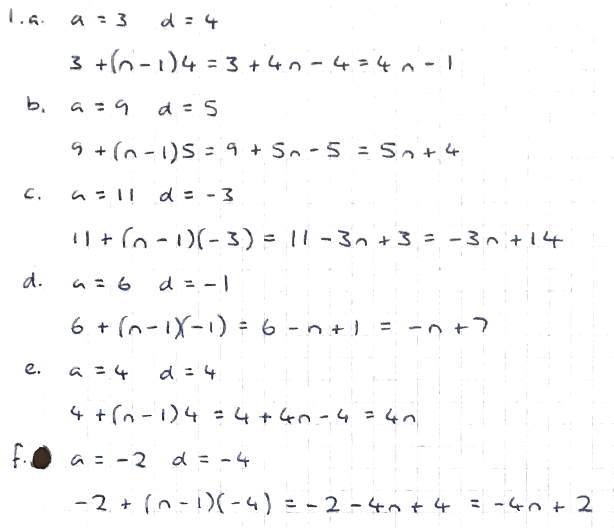 1.a. a = 3 d = 4
3 + (n - 1)4 = 3 + 4n - 4 = 4n - 1
b. a = 9 d = 5
9 + (n - 1)5 = 9 + 5n - 5 = 5n + 4
c. a = 11 d = -3
11 + (n - 1)(-3) = 11 - 3n + 3 = -3n + 14
d. a = 6 d = -1
6 + (n - 1)(-1) = 6 - n + 1 = -n + 7
e. a = 4 d = 4
4 + (n - 1)4 = 4 + 4n - 4 = 4n
f. a = -2 d = -4
-2 + (n - 1)(-4) = -2 - 4n + 4 = -4n + 2